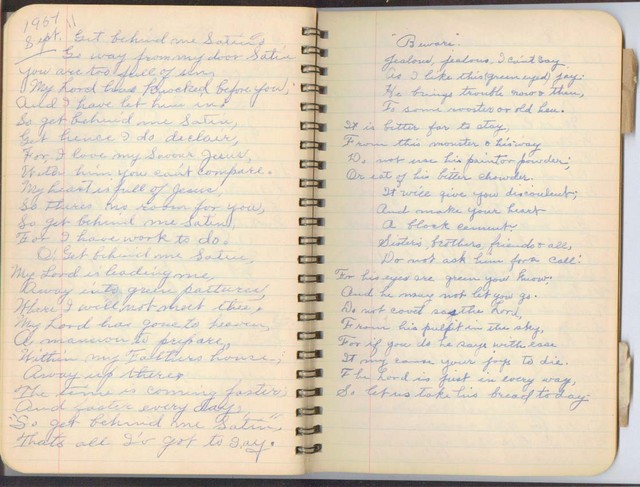 1957
Sept. Get behind me Satin,
Go way from my door Satin
You are too full of sin,
My Lord has knocked before you,
And I have let him in.
So get behind me Satin,
Get hence I do declair,
For I love my Savour Jesus,
With him you can't compare.
My heart is full of Jesus,
So theres no room for you,
So get behind me Satin,
For I have work to do.
O, Get behind me Satin,
My Lord is leading me
Away into green pastures,
Where I will not meet thee,
My Lord has gone to heaven,
A mansion to prepare,
Within my Fathers home,
Away up there
The time is coming faster
And faster every day,
"So get behind me Satin"
Thats all I'v got to say.
"Bewari"
Jealous, jealous, I can't say
is I like this (green eyed) jay:
He brings trouble now & then,
To some rooster or old hen.
It is better for to stay,
From this monster & his way
Do not use his paint or powder;
Or eat of his bitter chowder.
It will give you discontent;
And make your heart
A block cement.
Sisters, brothers, friends & all,
Do not ask him for a call:
For his eyes are green you know
And he may not let you go.
Do not covit says the Lord,
From his pulpit in the sky,
For if you do he says with ease
It my cause your joys to die.
The Lord is just in every way,
So let us take his bread today.